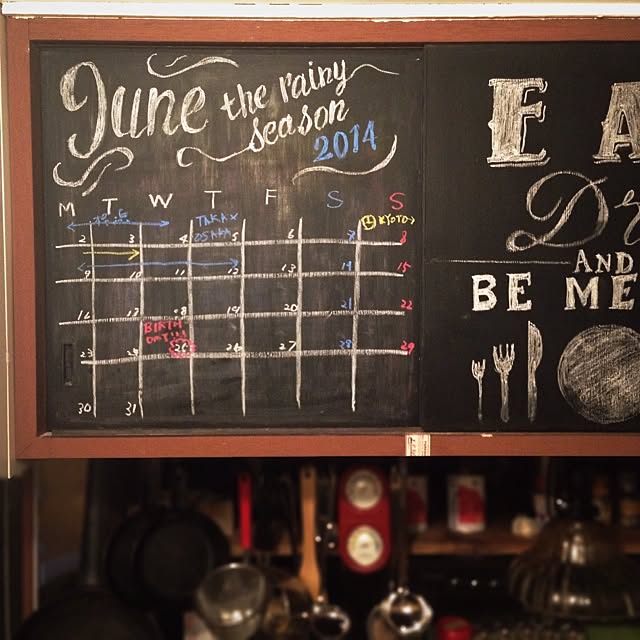 June the rainy
season
2014
M T W T F S S
TAKA x
OSAKA
KYOTO→
2 3 4 5 6 7 8
9 10 11 12 13 14 15
16 17 18 19 20 21 22
BIRTH
DAY!!!
23 24 25 26 27 28 29
30 31
EA
Dr
AND
BE ME